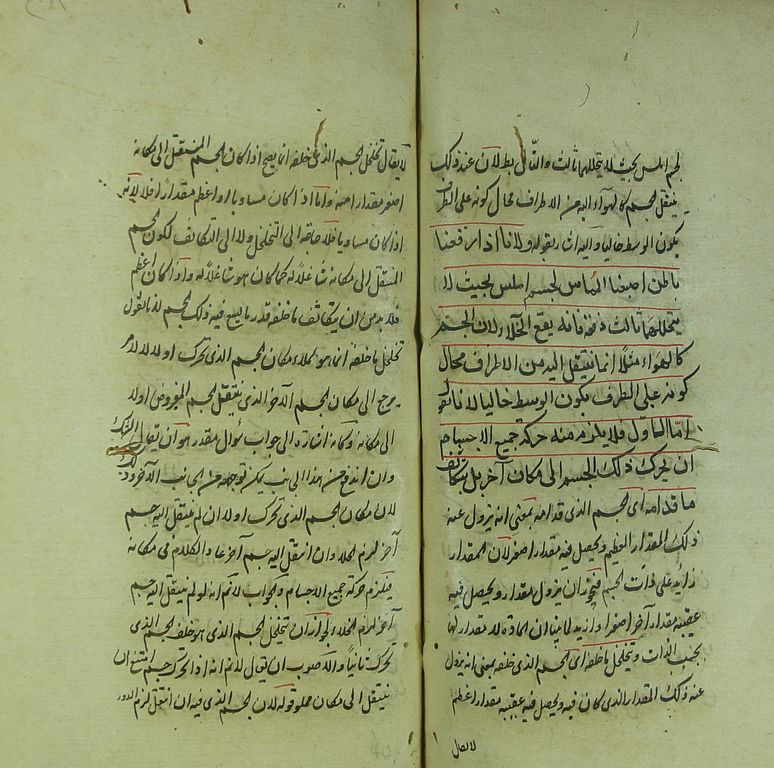 لجسم املس بحيث لا يتخللهما ثالث والتالى بطلان عند ذلك
ينتقل لجسم كالهواء اليه من الاطراف لحال كونه على الطرف
يكون الوسط خاليا واليه اشار بقوله ولانا اذا رفعنا
باطن اصبعنا المماس لجسم املس بحيث لا
يتخللهما ثالث دفعة فانه يقع الخلاء لان الجسم
كالهواء مثلا انما ينتقل اليه من الاطراف فحال
كونه على الطرف يكون الوسط خاليا لانا نقو
اما الاول فلا يلزم منه حركة جميع الاجسام
ان يحرك ذلك الجسم الى مكان آخر بل يتكاثف
ما قدامه اى لجسم الذى قدامه بمعنى انه يزول عنه
ذلك المقدار العظيم ويحصل فيه مقدار اصغر لان المقدار
زائد على ذات لجسم فيجوز ان يزول مقدار ويحصل فيه
عقيبه مقدار آخر اصغر او ازيد لما بينا ان المادة لا مقدار لها
بحسب الذات ويتخلخل ما خلفه اى لجسم الذى خلفه بمعنى انه يزول
عنه ذلك المقدار الذى كان فيه ويحصل فيه عقيبه مقدار اعظم
لا يقال
لا يقال تخلخل لجسم الذى خلفه انما يصح اذا كان لجسم المنتقل الى مكانه
اصغر مقدارا منه واما اذا كان مساويا او اعظم مقدارا فلا لانه
اذا كان مساويا فلا حاجة الى التخلخل ولا الى التكاثف لكون لجسم
المنتقل الى مكانه شاغلا له كما كان هو شاغلا له واذا كان اعظم
فلا بد من ان يتكاثف ما خلفه قدر ما يسع فيه ذلك لجسم لانا نقول
تخلخل ما خلفه انما هو لملاء مكان لجسم الذى تحرك اولا لا لامر
يرجع الى مكان لجسم الآخر الذى ينتقل لجسم المفروض اولا
الى مكانه وكانه اشارة الى جواب سؤال مقدر هو ان يقال الشك
وان اندفع من هذا الجانب لكن توجه من الجانب الآخر وذلك
لان مكان لجسم الذى تحرك اولا ان لم ينتقل اليه جسم
آخر لزم الخلاء وان انتقل اليه جسم آخر عاد الكلام فى مكانه
فيلزم حركة جميع الاجسام والجواب لا نم انه لو لم ينتقل اليه جسم
آخر لزم الخلاء لجواز ان يتخلخل لجسم الذى هو خلف لجسم الذى
تحرك ثانيا والاصوب ان يقول لا نم انه اذا تحرك جسم امتنع ان
ينتقل الى مكان مملو قوله لان لجسم الذى فيه ان انتقل لزم الدور